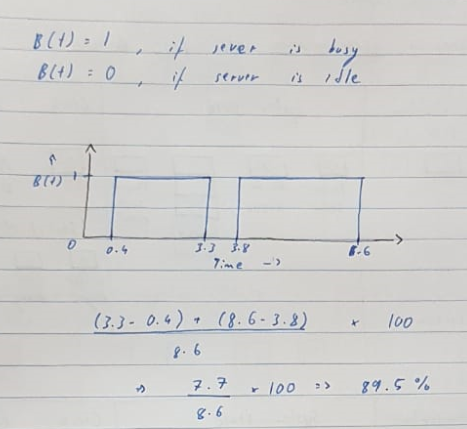 B(t) = 1 , if sever is busy
B(t) = 0 , if server is idle
B(t) 1
0 0.4 3.3 3.8 8.6
Time →
(3.3 - 0.4) + (8.6 - 3.8) × 100
8.6
⇒ 7.7 × 100 => 89.5 %
8.6